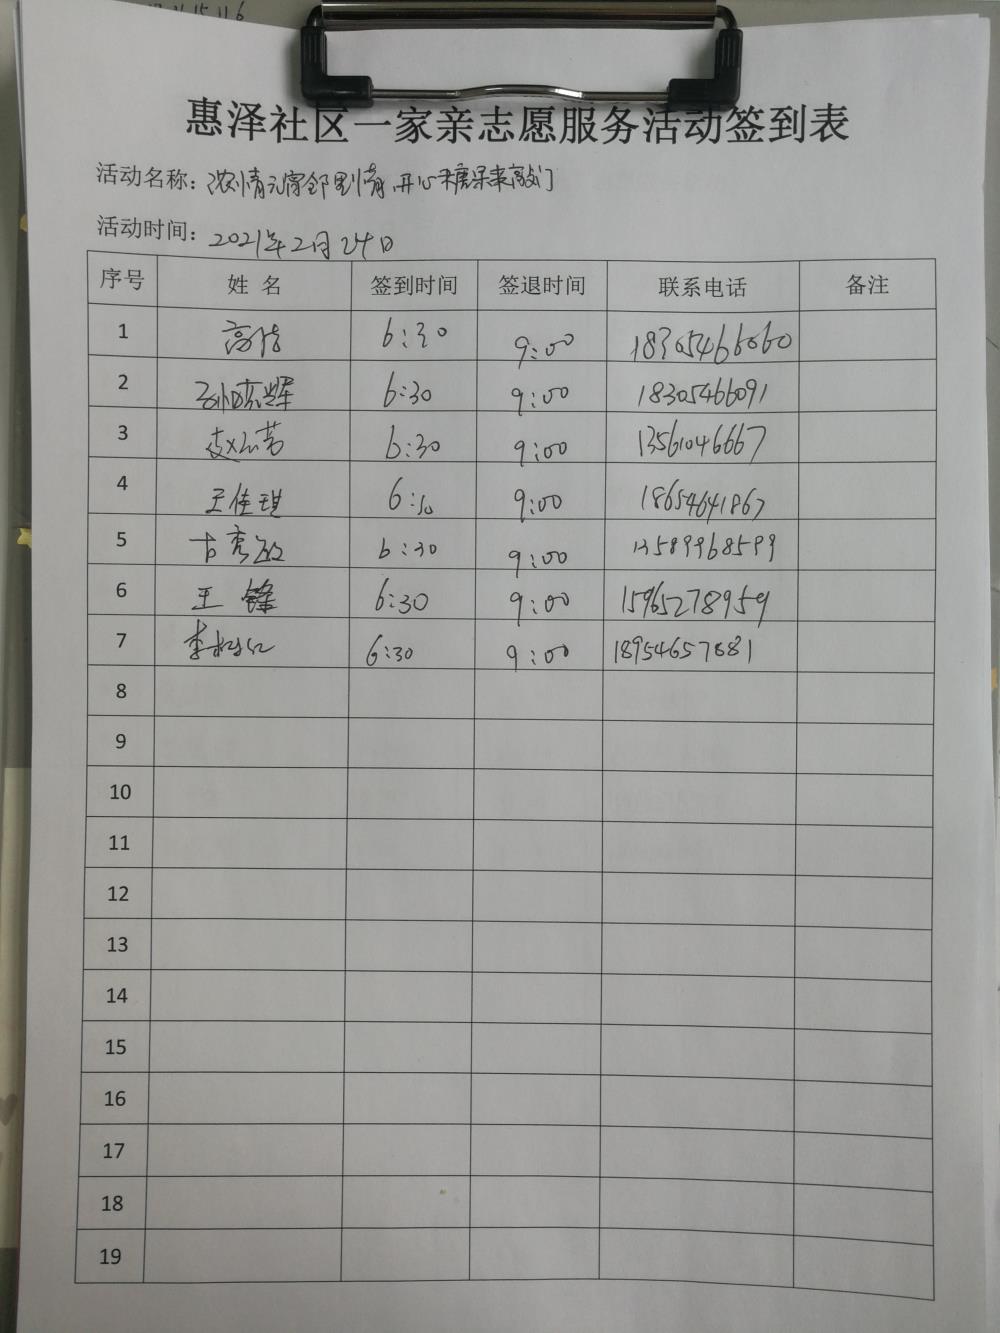 惠泽社区一家亲志愿服务活动签到表
活动名称：浓情元宵邻里情，开心糖果来敲门
活动时间：2021年2月24日
序号 姓名 签到时间 签退时间 联系电话 备注
1 高 6:30 9:00 18305466060
2 孙晓辉 6:30 9:00 18305466091
3 赵芸芳 6:30 9:00 13561046667
4 王佳琪 6:30 9:00 18654641867
5 古秀敏 6:30 9:00 13589968599
6 王锋 6:30 9:00 15965278959
7 李树红 6:30 9:00 18954657881
8
9
10
11
12
13
14
15
16
17
18
19